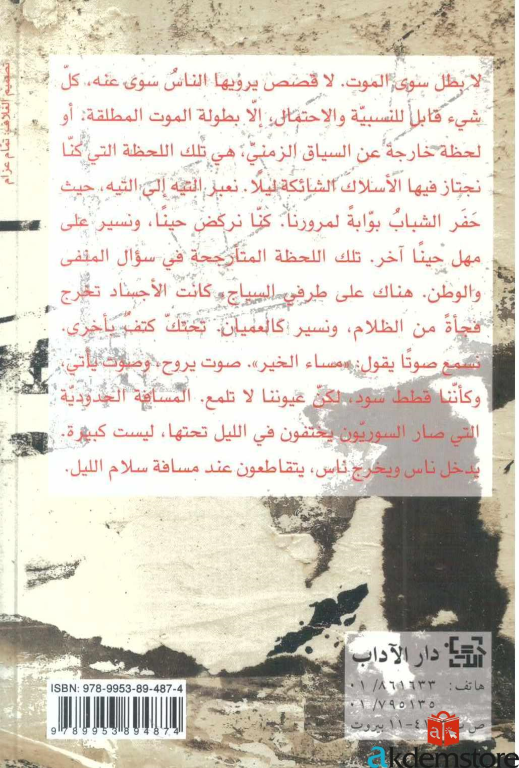 لا بطل سوى الموت. لا قصص يرويها الناسُ سوى عنه، كلّ
شيء قابل للنسبيّة والاحتمال، إلّا بطولة الموت المطلقة: أو
لحظة خارجة عن السياق الزمنيّ، هي تلك اللحظة التي كنّا
نجتاز فيها الأسلاك الشائكة ليلًا. نعبر التيه إلى التيه، حيث
حَفَر الشبابُ بوّابةً لمرورنا. كنّا نركض حينًا، ونسير على
مهل حينًا آخر. تلك اللحظة المتأرجحة في سؤال المنفى
والوطن. هناك على طرفي السياج، كانت الأجساد تخرج
فجأةً من الظلام، ونسير كالعميان. تحتكّ كتفٌ بأخرى.
نسمع صوتًا يقول: «مساء الخير». صوت يروح، وصوت يأتي،
وكأنّنا قطط سود، لكنّ عيوننا لا تلمع. المسافة الحدوديّة
التي صار السوريّون يختفون في الليل تحتها، ليست كبيرة.
يدخل ناس ويخرج ناس، يتقاطعون عند مسافة سلام الليل.
تصميم الغلاف: تمام عزام
دار الآداب
هاتف: ٠١/٨٦١٦٣٣
٠١/٧٩٥١٣٥
بيروت
ISBN: 978-9953-89-487-4
9 789953 894874
akdemstore